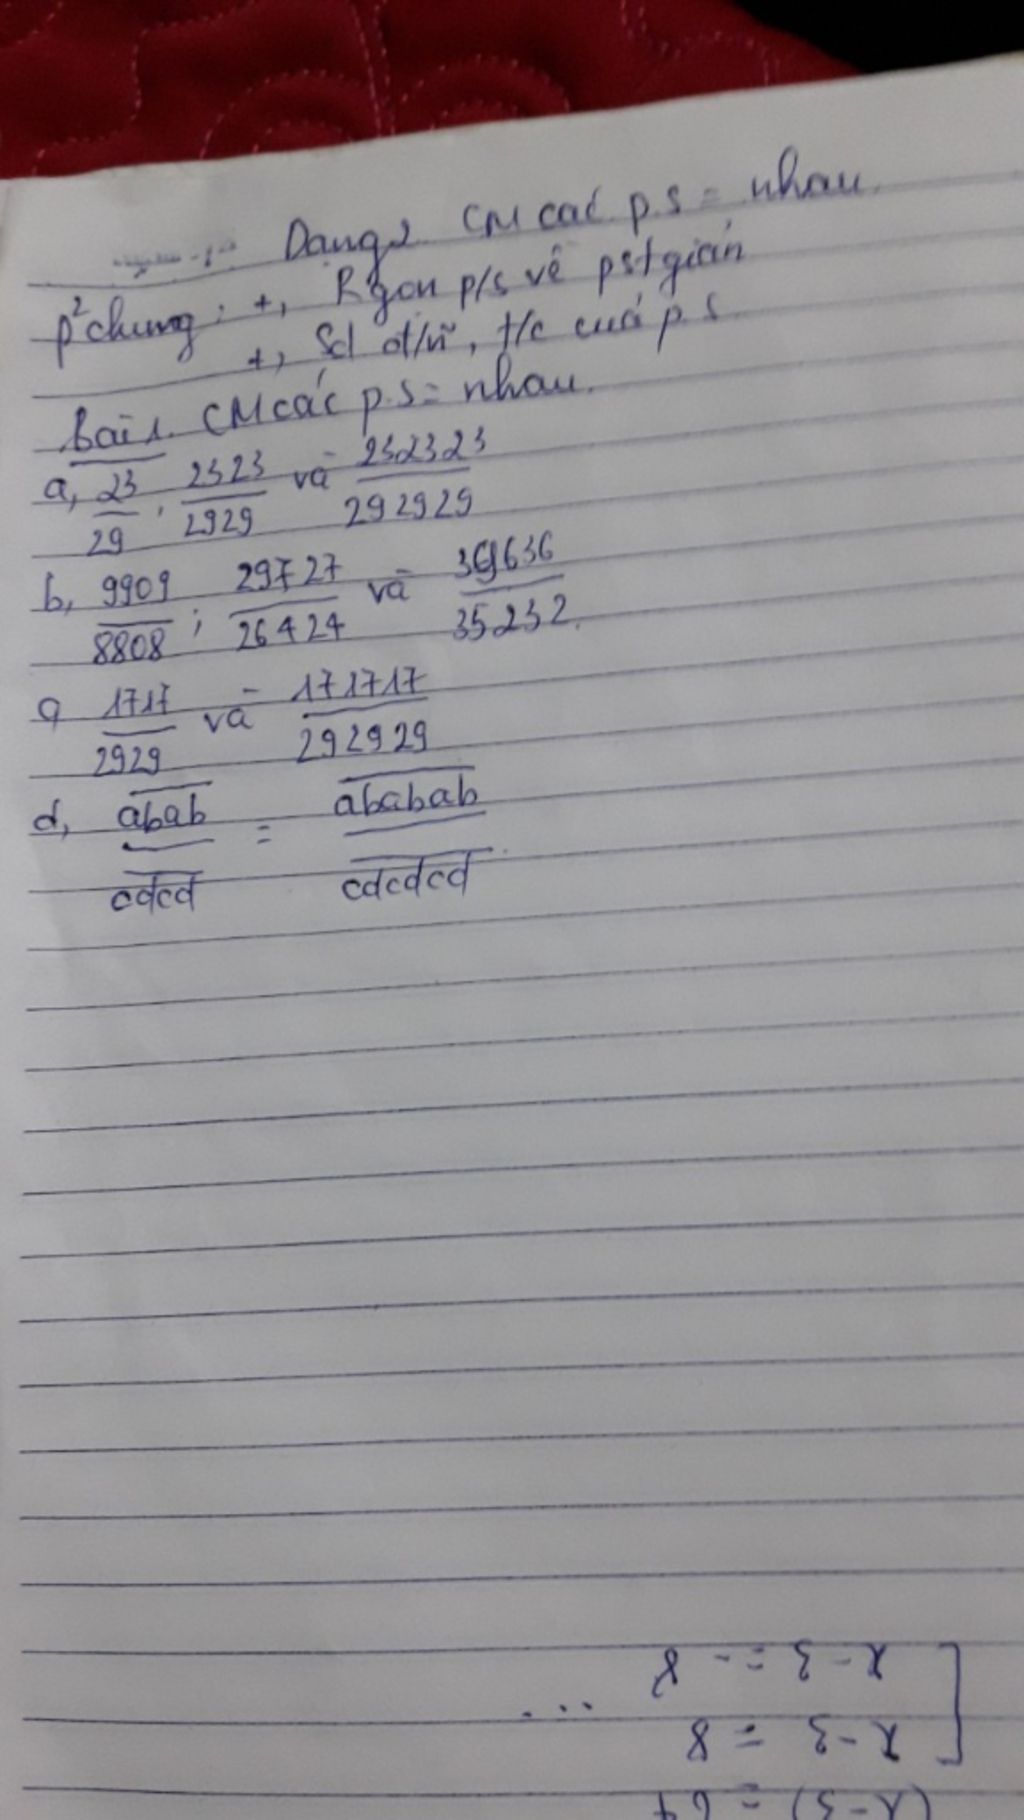 Dạng 2 CM các p.s = nhau.
p² chung: +, Rgọn p/s về pstgiản
+, Sd đ/n, t/c của p.s
Bài 1. CM các p.s = nhau.
a, 23/29 ; 2323/2929 và 232323/292929
b, 9909/8808 ; 29727/26424 và 39636/35232.
c, 1717/2929 và 171717/292929
d, abab/cdcd = ababab/cdcdcd.
(x-3) = 64
x-3 = 8
x-3 = -8 ...